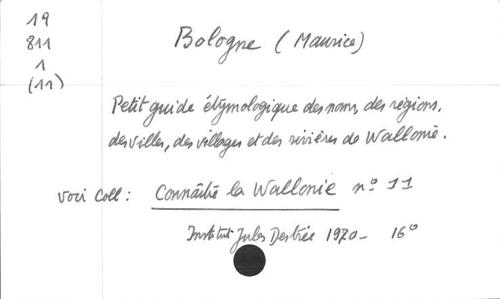 19
811
1
(11)
Bologne (Maurice)
Petit guide étymologique des noms, des régions,
des villes, des villages et des rivières de Wallonie.
Voir Coll : Connaître la Wallonie n° 11
Institut Jules Destrée 1970 - 16°